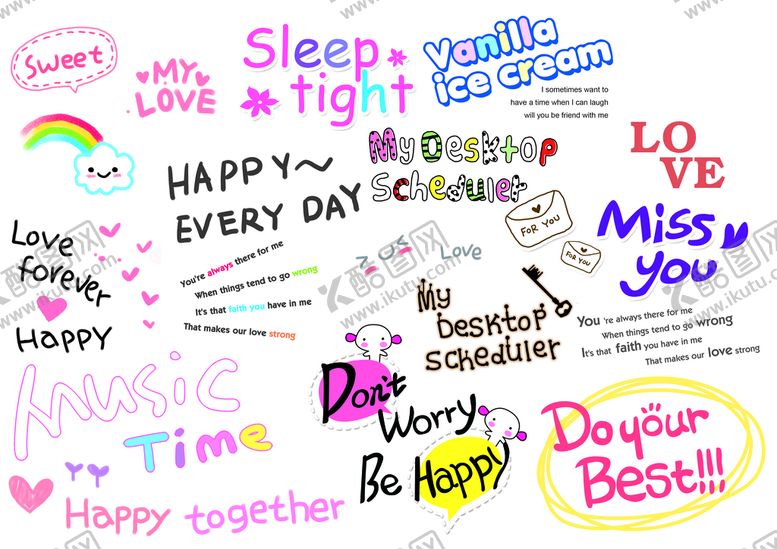 Sweet
MY
LOVE
Sleep
tight
Vanilla
ice cream
I sometimes want to
have a time when I can laugh
will you be friend with me
LO
VE
HAPPY~
EVERY DAY
My Desktop
Scheduler
FOR YOU
FOR YOU
Miss
you
Love
forever
Happy
You're always there for me
When things tend to go wrong
It's that faith you have in me
That makes our love strong
Love
My
Desktop
Scheduler
You 're always there for me
When things tend to go wrong
It's that faith you have in me
That makes our love strong
Music
Time
Don't
Worry
Be Happy
Do your
Best!!!
Happy together
酷图网
www.ikutu.com